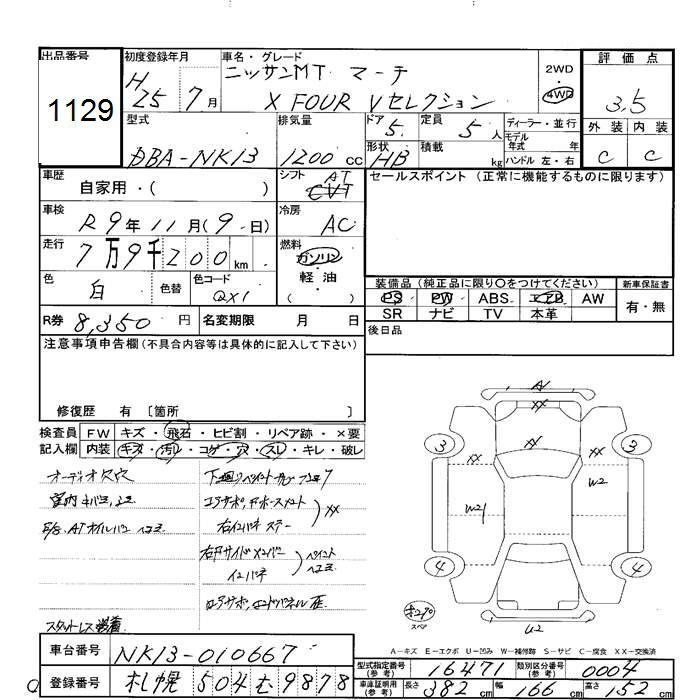 出品番号
1129
初度登録年月
H 25 7 月
車名・グレード
ニッサンMT マーチ
X FOUR Vセレクション
2WD
4WD
評価点
3.5
外装 内装
C C
型式
DBA-NK13
排気量
1200 cc
ドア 5
定員 5 人
形状 HB
積載 kg
ディーラー・並行
モデル年式 年
ハンドル 左・右
車歴
自家用・( )
シフト AT
CVT
セールスポイント (正常に機能するものに限ります)
車検
R9年11月(9日)
冷房
AC
走行
7万9千200km
燃料
ガソリン・軽油
( )
色
白
色替
色コード
QX1
装備品(純正品に限り○をつけてください)
新車保証書
PS PW ABS エアB AW
SR ナビ TV 本革
有・無
R券 8,350 円
名変期限 月 日
後日品
注意事項申告欄(不具合内容等は具体的に記入して下さい)
修復歴 有 〔箇所 〕
検査員記入欄
FW キズ・飛石・ヒビ割・リペア跡・×要
内装 キズ・汚レ・コゲ・穴・スレ・キレ・破レ
オーディオ欠穴
室内キバミ、
下廻りペイント
コアサポ
右インパネステー
XX
ペイント
スタッドレス装着
A
XX
3 3
XX XX
W2 W2
4 4
スペア
U2
A-キズ E-エクボ U-凹み W-補修跡 S-サビ C-腐食 XX-交換済
車台番号
NK13-010667
登録番号
札幌 504 む 9878
型式指定番号(参考)
16471
類別区分番号(参考)
0004
車庫証明用(参考)
長さ 382 cm
幅 166 cm
高さ 152 cm